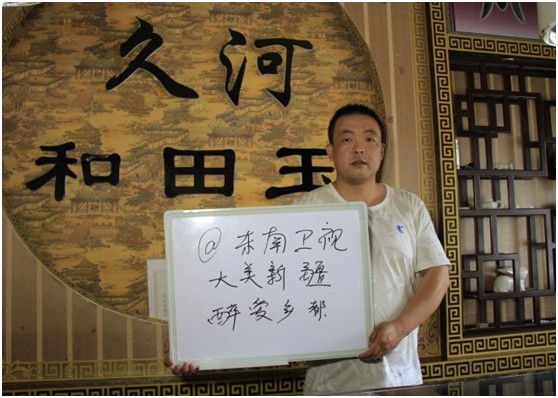 久河
和田玉
@东南卫视
大美新疆
醉爱乡都